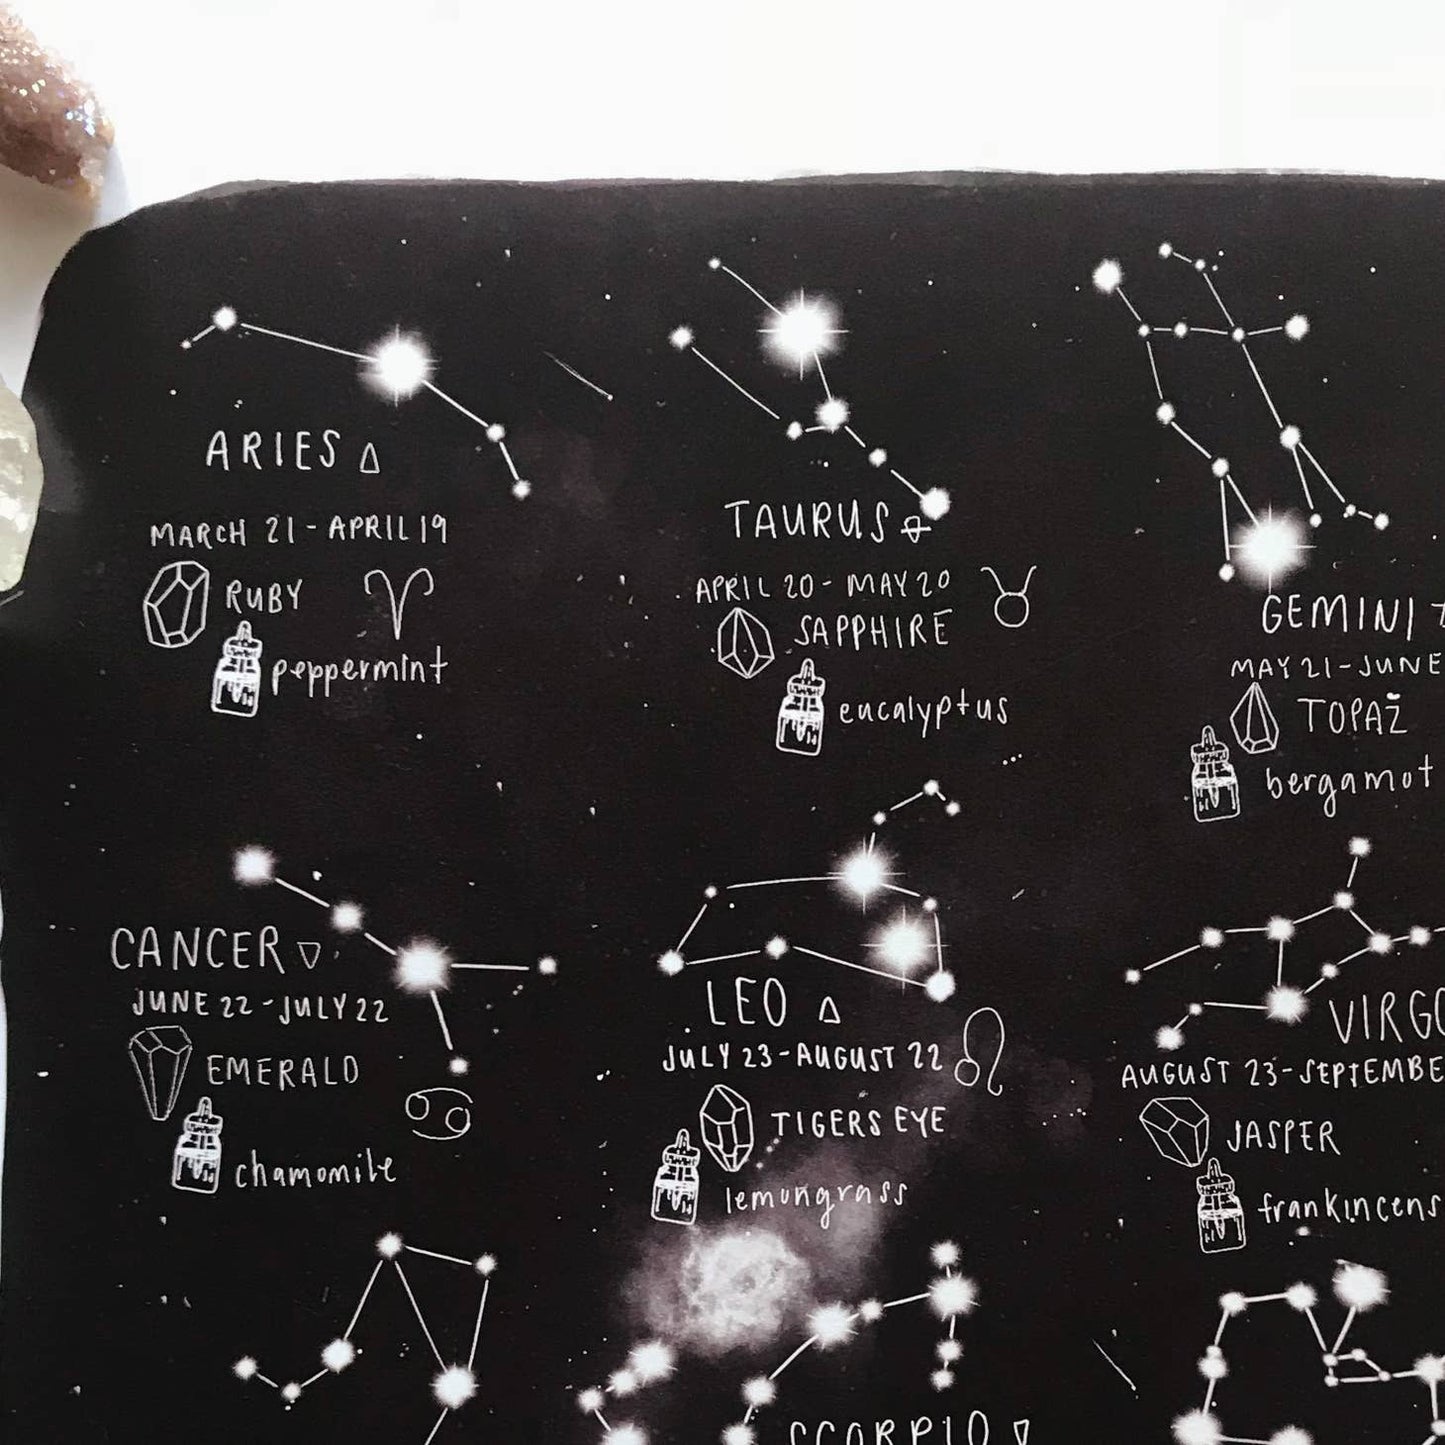 ARIES
MARCH 21 - APRIL 19
RUBY
peppermint
TAURUS
APRIL 20 - MAY 20
SAPPHIRE
eucalyptus
GEMINI
MAY 21 - JUNE
TOPAZ
bergamot
CANCER
JUNE 22 - JULY 22
EMERALD
chamomile
LEO
JULY 23 - AUGUST 22
TIGERS EYE
lemongrass
VIRGO
AUGUST 23 - SEPTEMBE
JASPER
frankincens
SCORPIO